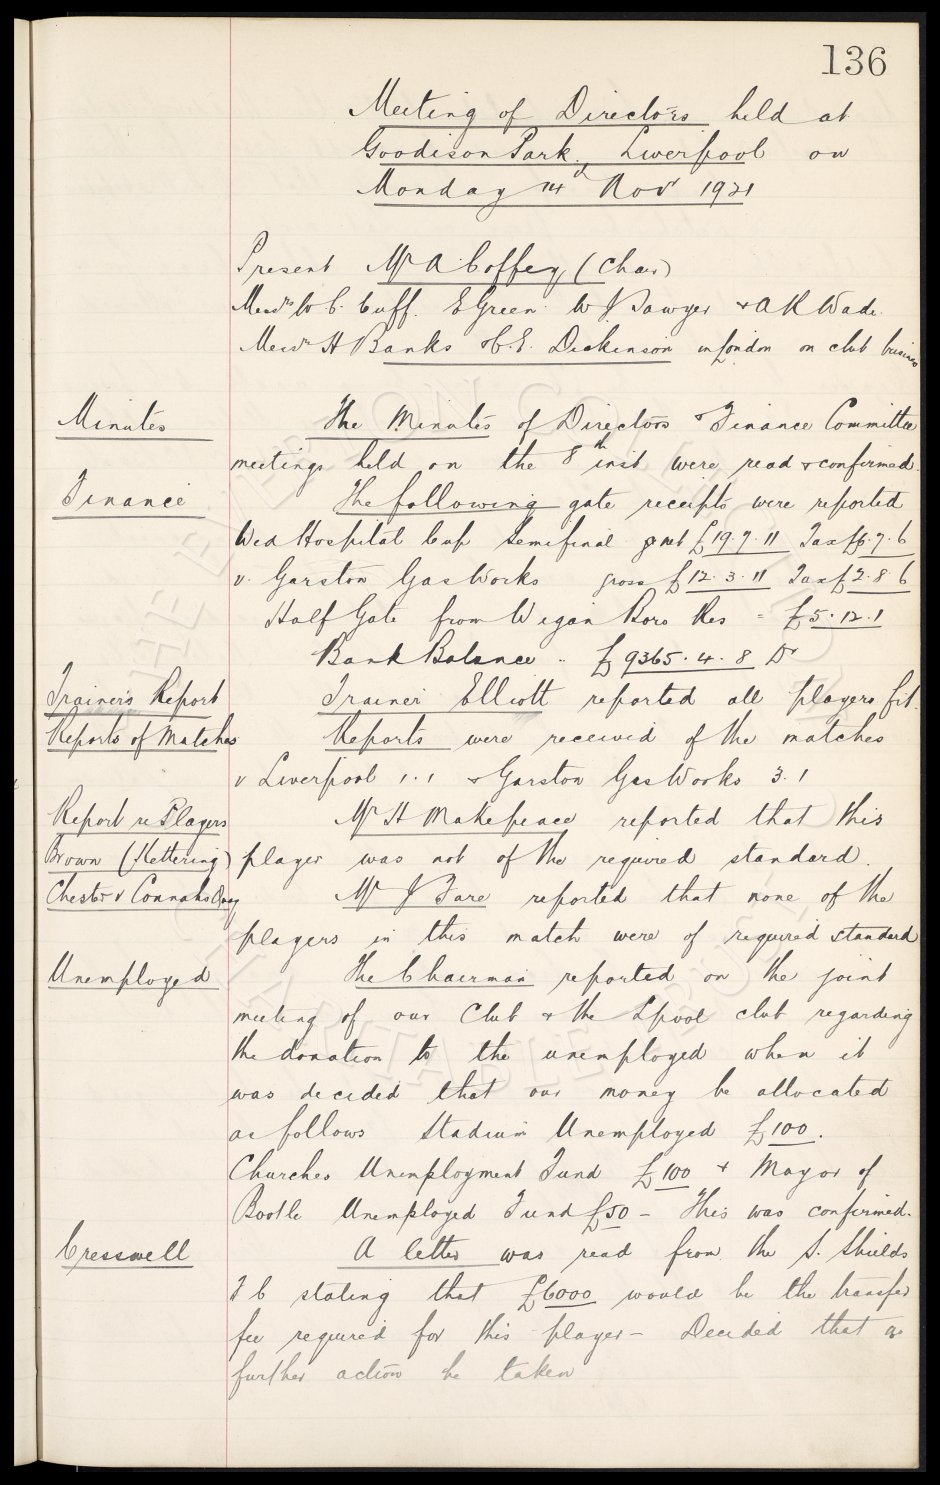 136
Meeting of Directors held at
Goodison Park, Liverpool on
Monday 14th Nov 1921
Present Mr A Coffey (Chair)
Messrs W C Cuff. E Green W J Sawyer & A R Wade.
Messrs H Banks & C.E. Dickinson in London on club business
Minutes
The Minutes of Directors & Finance Committee
meetings held on the 8th inst were read & confirmed.
Finance
The following gate receipts were reported
Wed Hospital Cup Semifinal net £19.7.11 Tax £6.7.6
v. Garston Gas Works gross £12.3.11 Tax £2.8.6
Half Gate from Wigan Boro Res = £5.12.1
Bank Balance .. £9365.4.8 Dr
Trainer's Report
Trainer Elliott reported all players fit.
Reports of Matches
Reports were received of the matches
v Liverpool 1.1 & Garston Gas Works 3.1
Report re Players
Mr H Makepeace reported that this
Brown (Kettering)
player was not of the required standard.
Chester v Connahs Quay
Mr J Fare reported that none of the
players in this match were of required standard
Unemployed
The Chairman reported on the joint
meeting of our Club & the Lpool club regarding
the donation to the unemployed when it
was decided that our money be allocated
as follows Stadium Unemployed £100.
Churches Unemployment Fund £100 & Mayor of
Bootle Unemployed Fund £50 - This was confirmed.
Cresswell
A letter was read from the S. Shields
F C stating that £6000 would be the transfer
fee required for this player - Decided that no
further action be taken